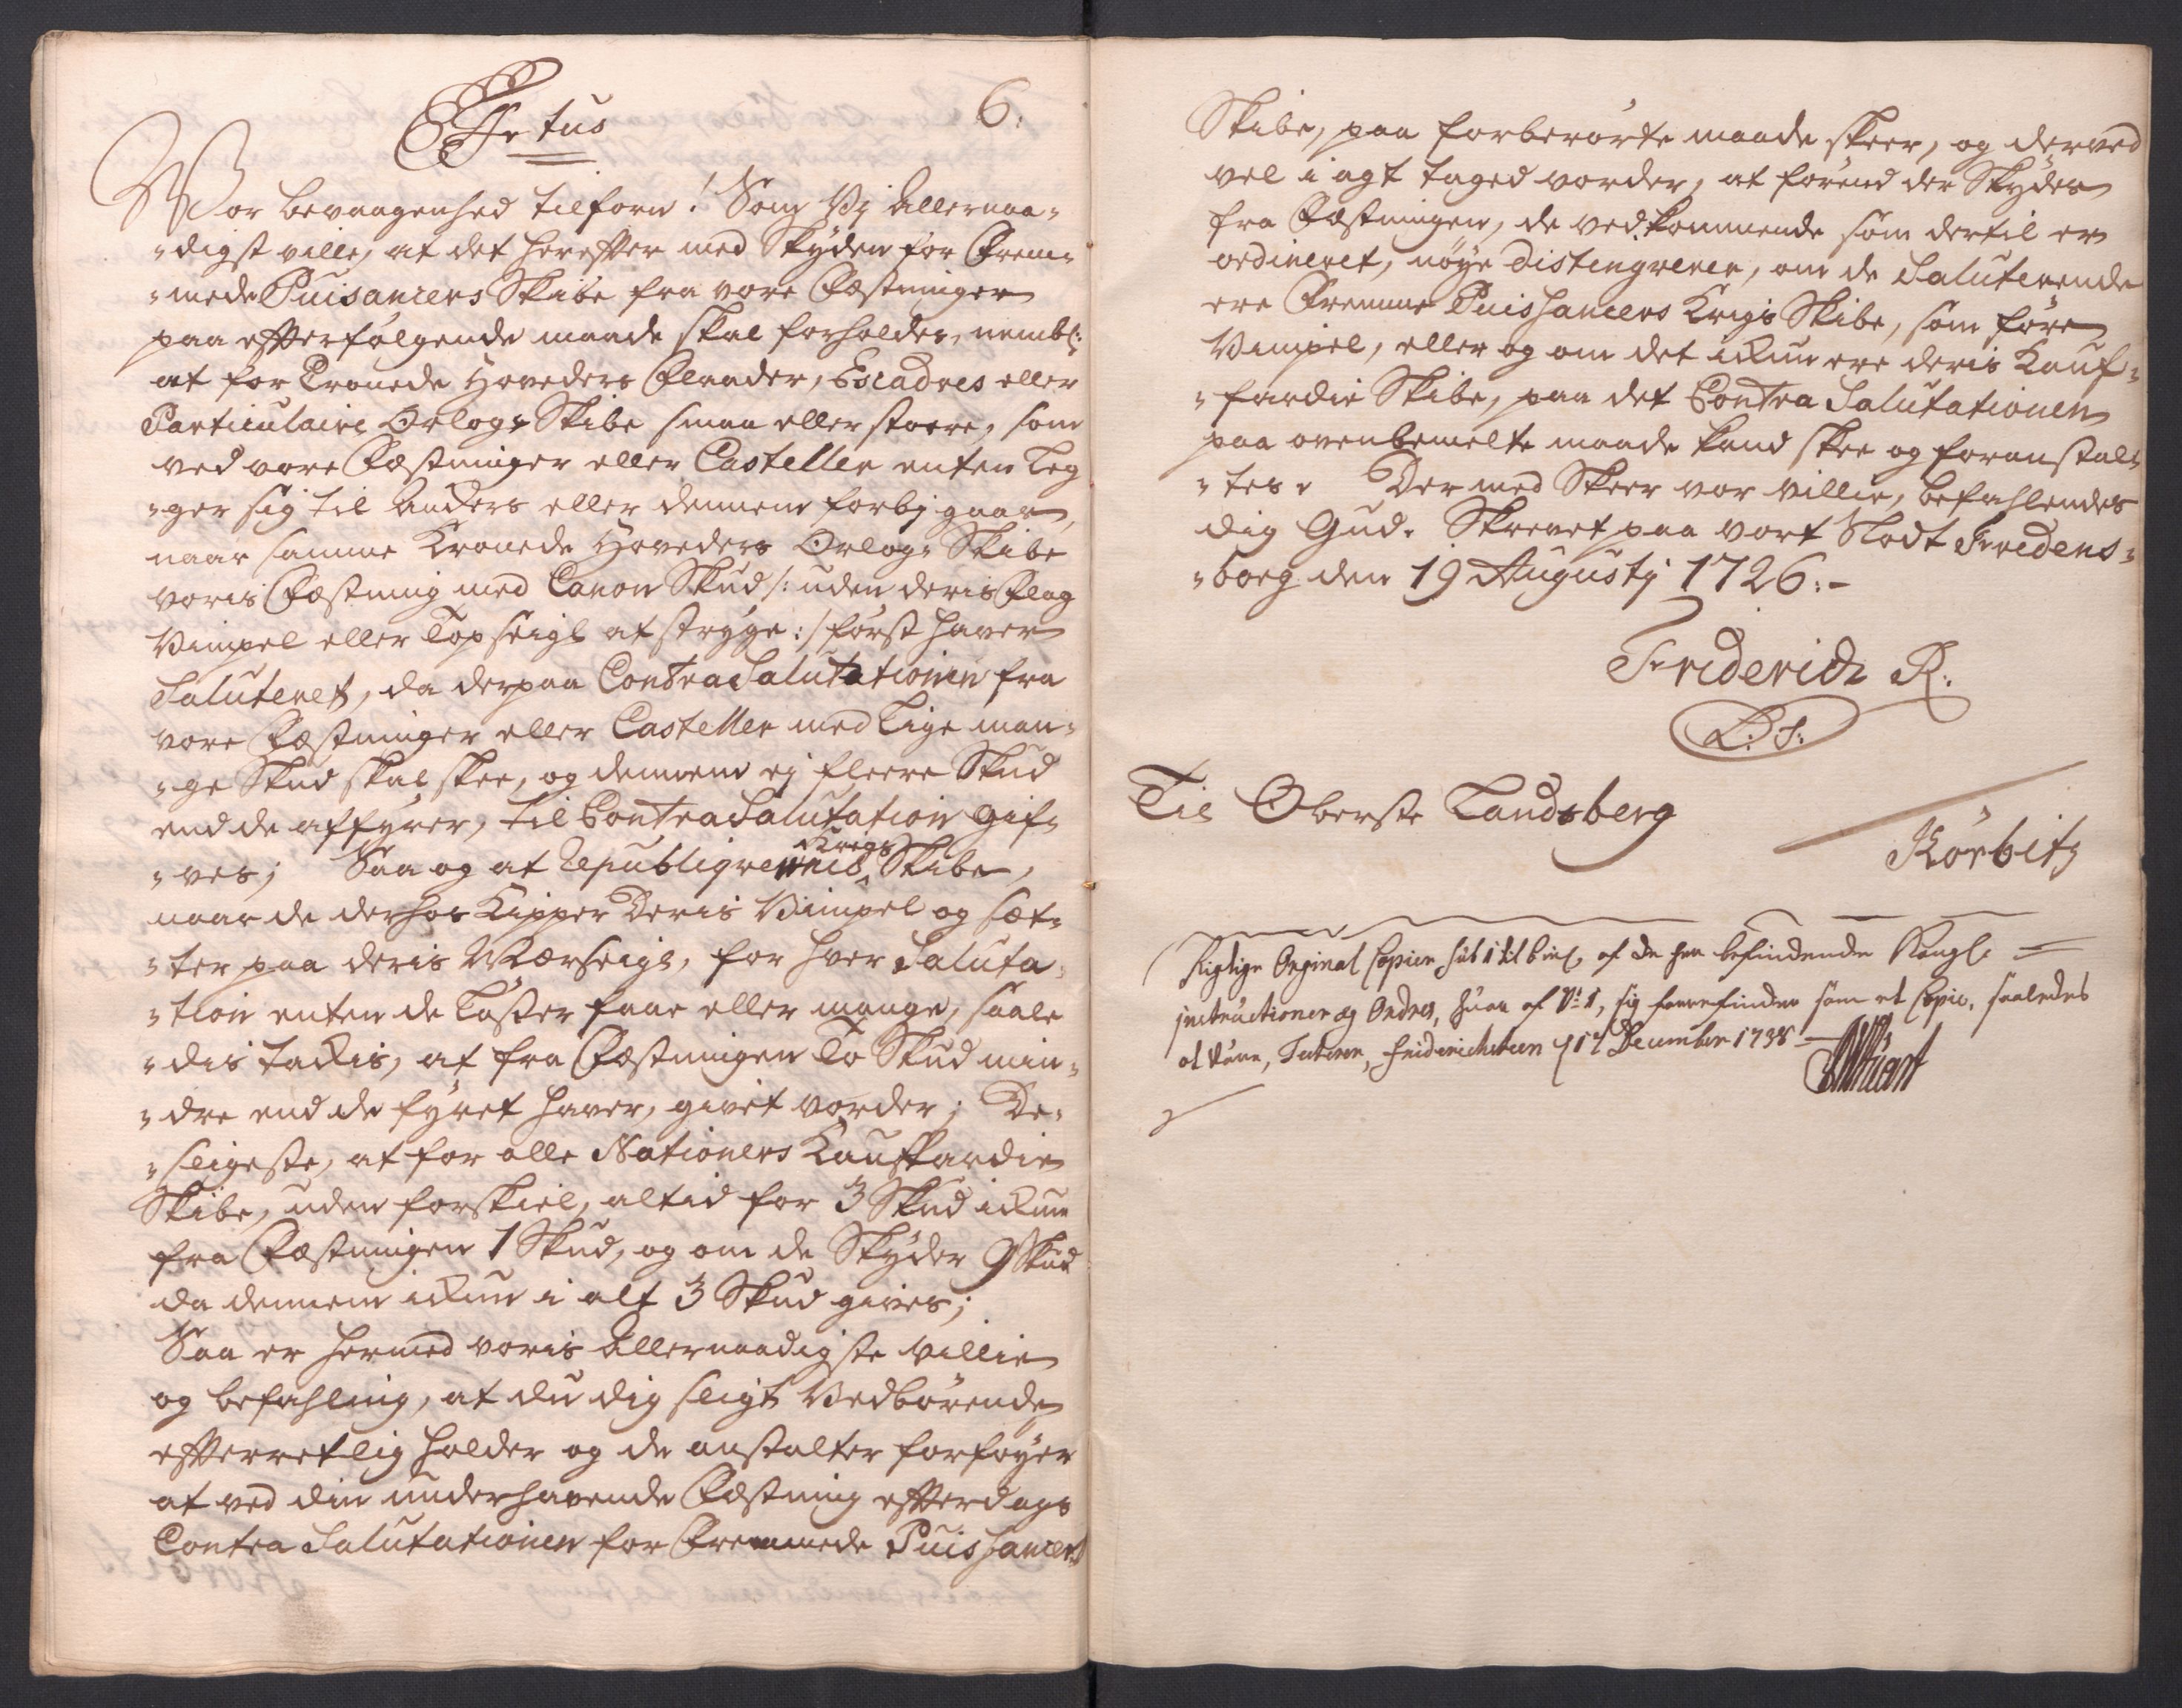 Fr 4tus
6.
Wor bevaagenhed tilforn! Som Vj Allernaa-
-digst ville, at det herefter med Skyden for Frem-
-mede Puisancers Skibe fra vore Fæstninger
paa efterfølgende maade skal forholdes, nembl:
at for Cronede Hoveders Flaader, Escadres eller
Particulaire Orlogs Skibe smaa eller stoere, som
ved vore Fæstninger eller Casteller enten leg
-ger sig til Anckers eller dennem forbj gaar,
naar samme Kronede Hoveders Orlogs Skibe
voris Fæstning med Canon Skud /: uden deris Flag
Vimpel eller Topseigl at stryge :/ først haver
Saluteret, da derpaa Contra Salutationen fra
vore Fæstninger eller Casteller med lige man-
-ge Skud skal skee, og dennem ej fleere Skud
end de affyrer, til Contra Salutation gif-
-ves; Saa og at Republiqvernis Krigs Skibe,
naar de derhos Kipper Deris Vimpel og sæt-
-ter paa deris Mærseigl, for hver Saluta-
-tion enten de løsser faae eller mange, saale
-dis tackis, at fra Fæstningen To Skud min-
-dre end de fyret haver, givet vorder; De-
-sligeste, at for alle Nationers Kauffardie
Skibe, uden forskiel, altid for 3 Skud ickun
fra Fæstningen 1 Skud, og om de Skyder 9 Skud
da dennem ickun i alt 3 Skud gives;
Saa er hermed voris Allernaadigste villie
og befahling, at du dig sligt Vedbørende
efterretlig holder og de anstalter forføyer
at ved din underhavende Fæstning efterdags
Contra Salutationen for Fremmede Puishancers
Skibe, paa forberørte maade skeer, og derved
vel i agt taged vorder, at førend der Skydes
fra Fæstningen, de vedkommende som dertil er
ordineret, nøye distingverer, om de Saluterende
ere Fremme Puishancers Krigs Skibe, som føre
Vimpel, eller og om det ickun ere deris Kauf-
-fardie Skibe, paa det Contra Salutationen
paa ovenbemelte maade kand skee og foranstal-
-tes. Der med Skeer vor villie, befahlendes
dig Gud. Skrevet paa vort Slodt Fredens-
-borg den 19 Augustj 1726.-
Friderich R.
L. S.
Til Oberste Landsberg
Körbitz
Rigtige Orginal Copier sub 1 til 6 incl. af de her befindende Kongl.
instructioner og Ordres, af No 1, sig forrefinder som et Copie, saaledes
at være, Friderichsteen d 17 December 1738